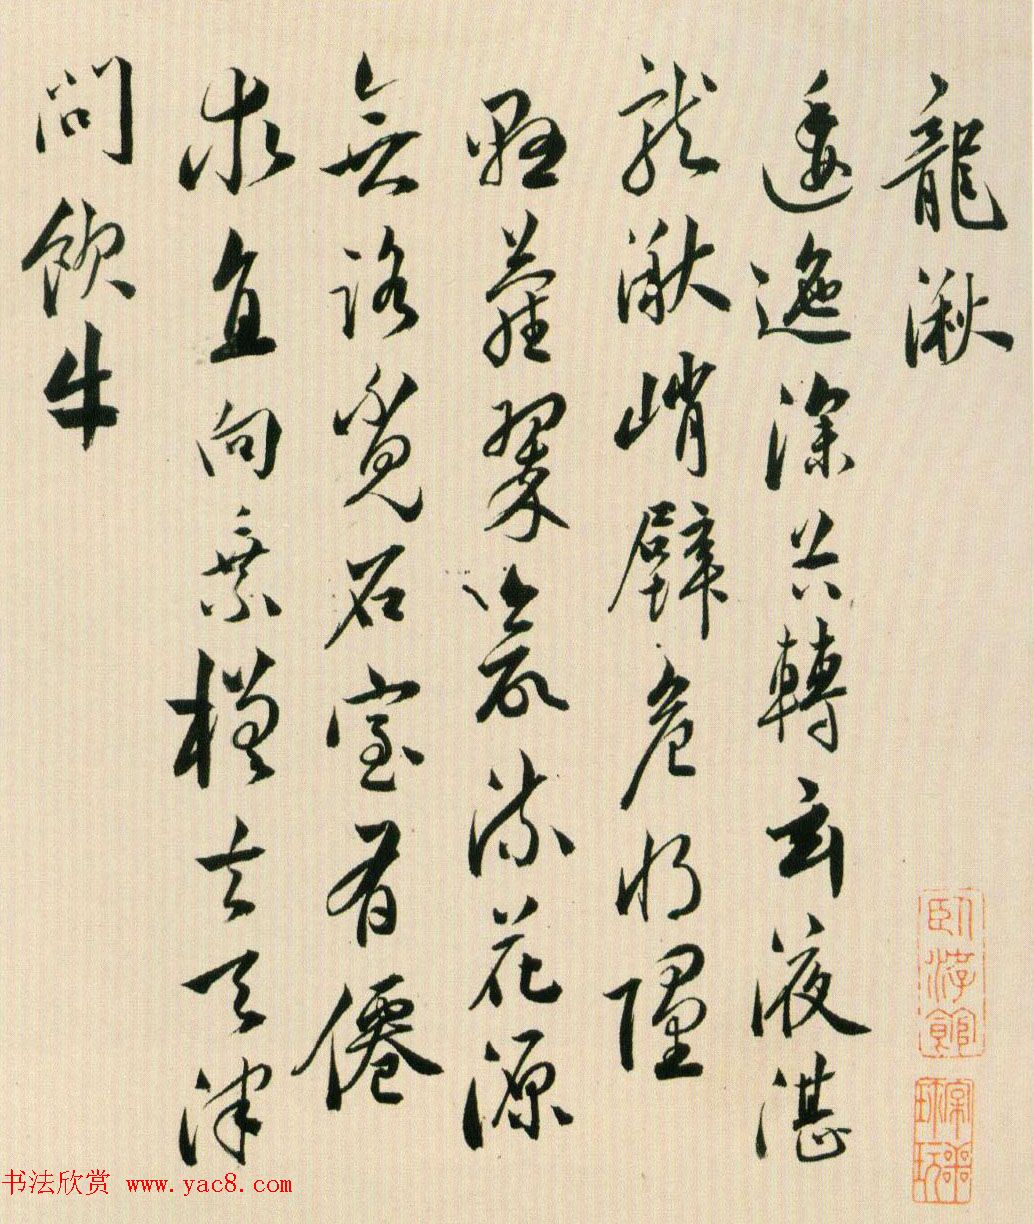 龍湫
逶迤深谷轉玄液湛
龍湫峭壁危將
懸蘿翠流花源
無路覓石室有僊
求直向乘槎去天津
問飲牛
书法欣赏 www.yac8.com